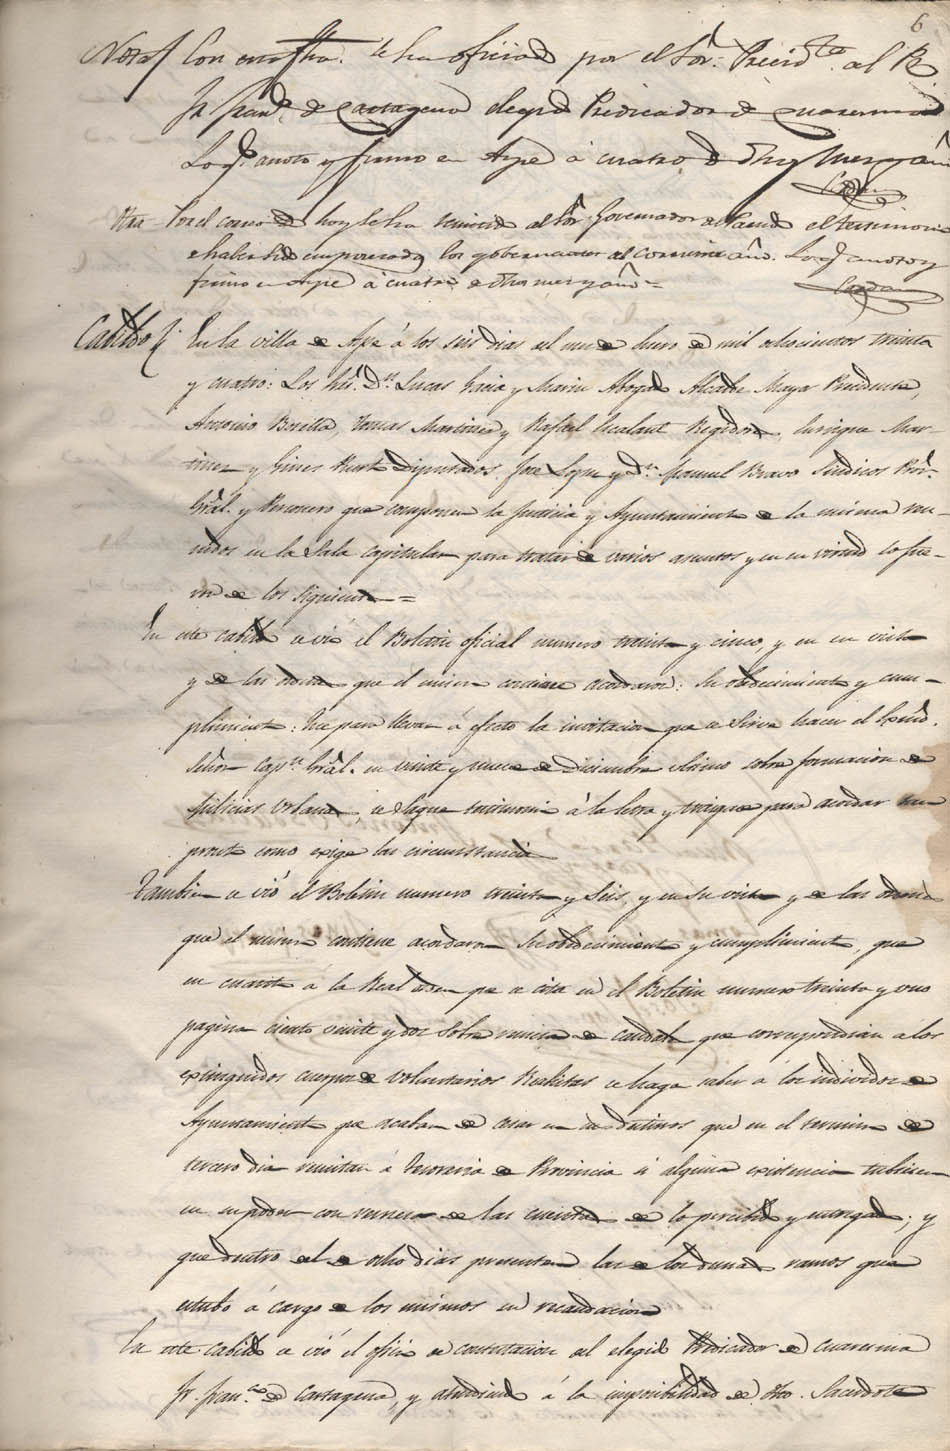 6
Nota Con esta fha. se ha oficiado por el Sor. Presidte. al R
Fr. Franco. de Cartagena elegido Predicador de cuaresma
Lo qe. anoto y firmo en Aspe á cuatro de dho mes y año
Otra Por el correo de hoy se ha remitido al Sor. Governador el testimonio
de haberse los al corriente año. Lo qe. anoto y
firmo en Aspe á cuatro de dho mes y año =
Cabildo En la villa de Aspe á los seis dias del mes de Enero de mil ochocientos treinta
y cuatro: Los Sres. Dn. Lucas Abogado Alcalde Mayor Presidente,
Antonio Botella, Tomas Martinez y Rafael Regidores, Enrique Mar-
tinez y Gines Diputados, José Lopez y Dn. Manuel Bravo Sindicos Pror.
Gral. y Personero que componen la Justicia y Ayuntamiento de la misma reu-
nidos en la Sala Capitular para tratar de varios asuntos y en su virtud lo fue-
ron de los siguientes =
En este cabildo se vió el Boletin oficial numero treinta y cinco, y en su vista
y de las ordenes que el mismo contiene acordaron: Su obedecimiento y cum-
plimiento: Que para llevar á efecto la invitacion que se sirve hacer el Exmo.
Señor Capn. Gral. en veinte y nueve de Diciembre ultimo sobre formacion de
Milicias Urbanas, se saque testimonio á la letra y traigase para acordar tan
pronto como exige las circunstancias
Tambien se vió el Boletin numero treinta y seis, y en su vista y de las ordenes
que el mismo contiene acordaron Su obedecimiento y cumplimiento, que
en cuanto á la Real orden que se cita en el Boletin numero treinta y uno
pagina ciento veinte y dos sobre de caudales que correspondian a los
extinguidos cuerpos de Voluntarios Realistas se haga saber á los individuos de
Ayuntamiento que acaban de cesar en sus destinos que en el termino de
tercero dia remitan á Tesoreria de Provincia si alguna existencia tubiesen
en su poder con de las cuentas de lo percibido y ; y
que dentro el de ocho dias presenten las de los demas ramos que
estubo á cargo de los mismos su recaudacion
En este cabildo se vió el oficio de contestacion del elegido Predicador de cuaresma
Fr. Franco. de Cartagena, y atendiendo á la imposibilidad de dho. Sacerdote